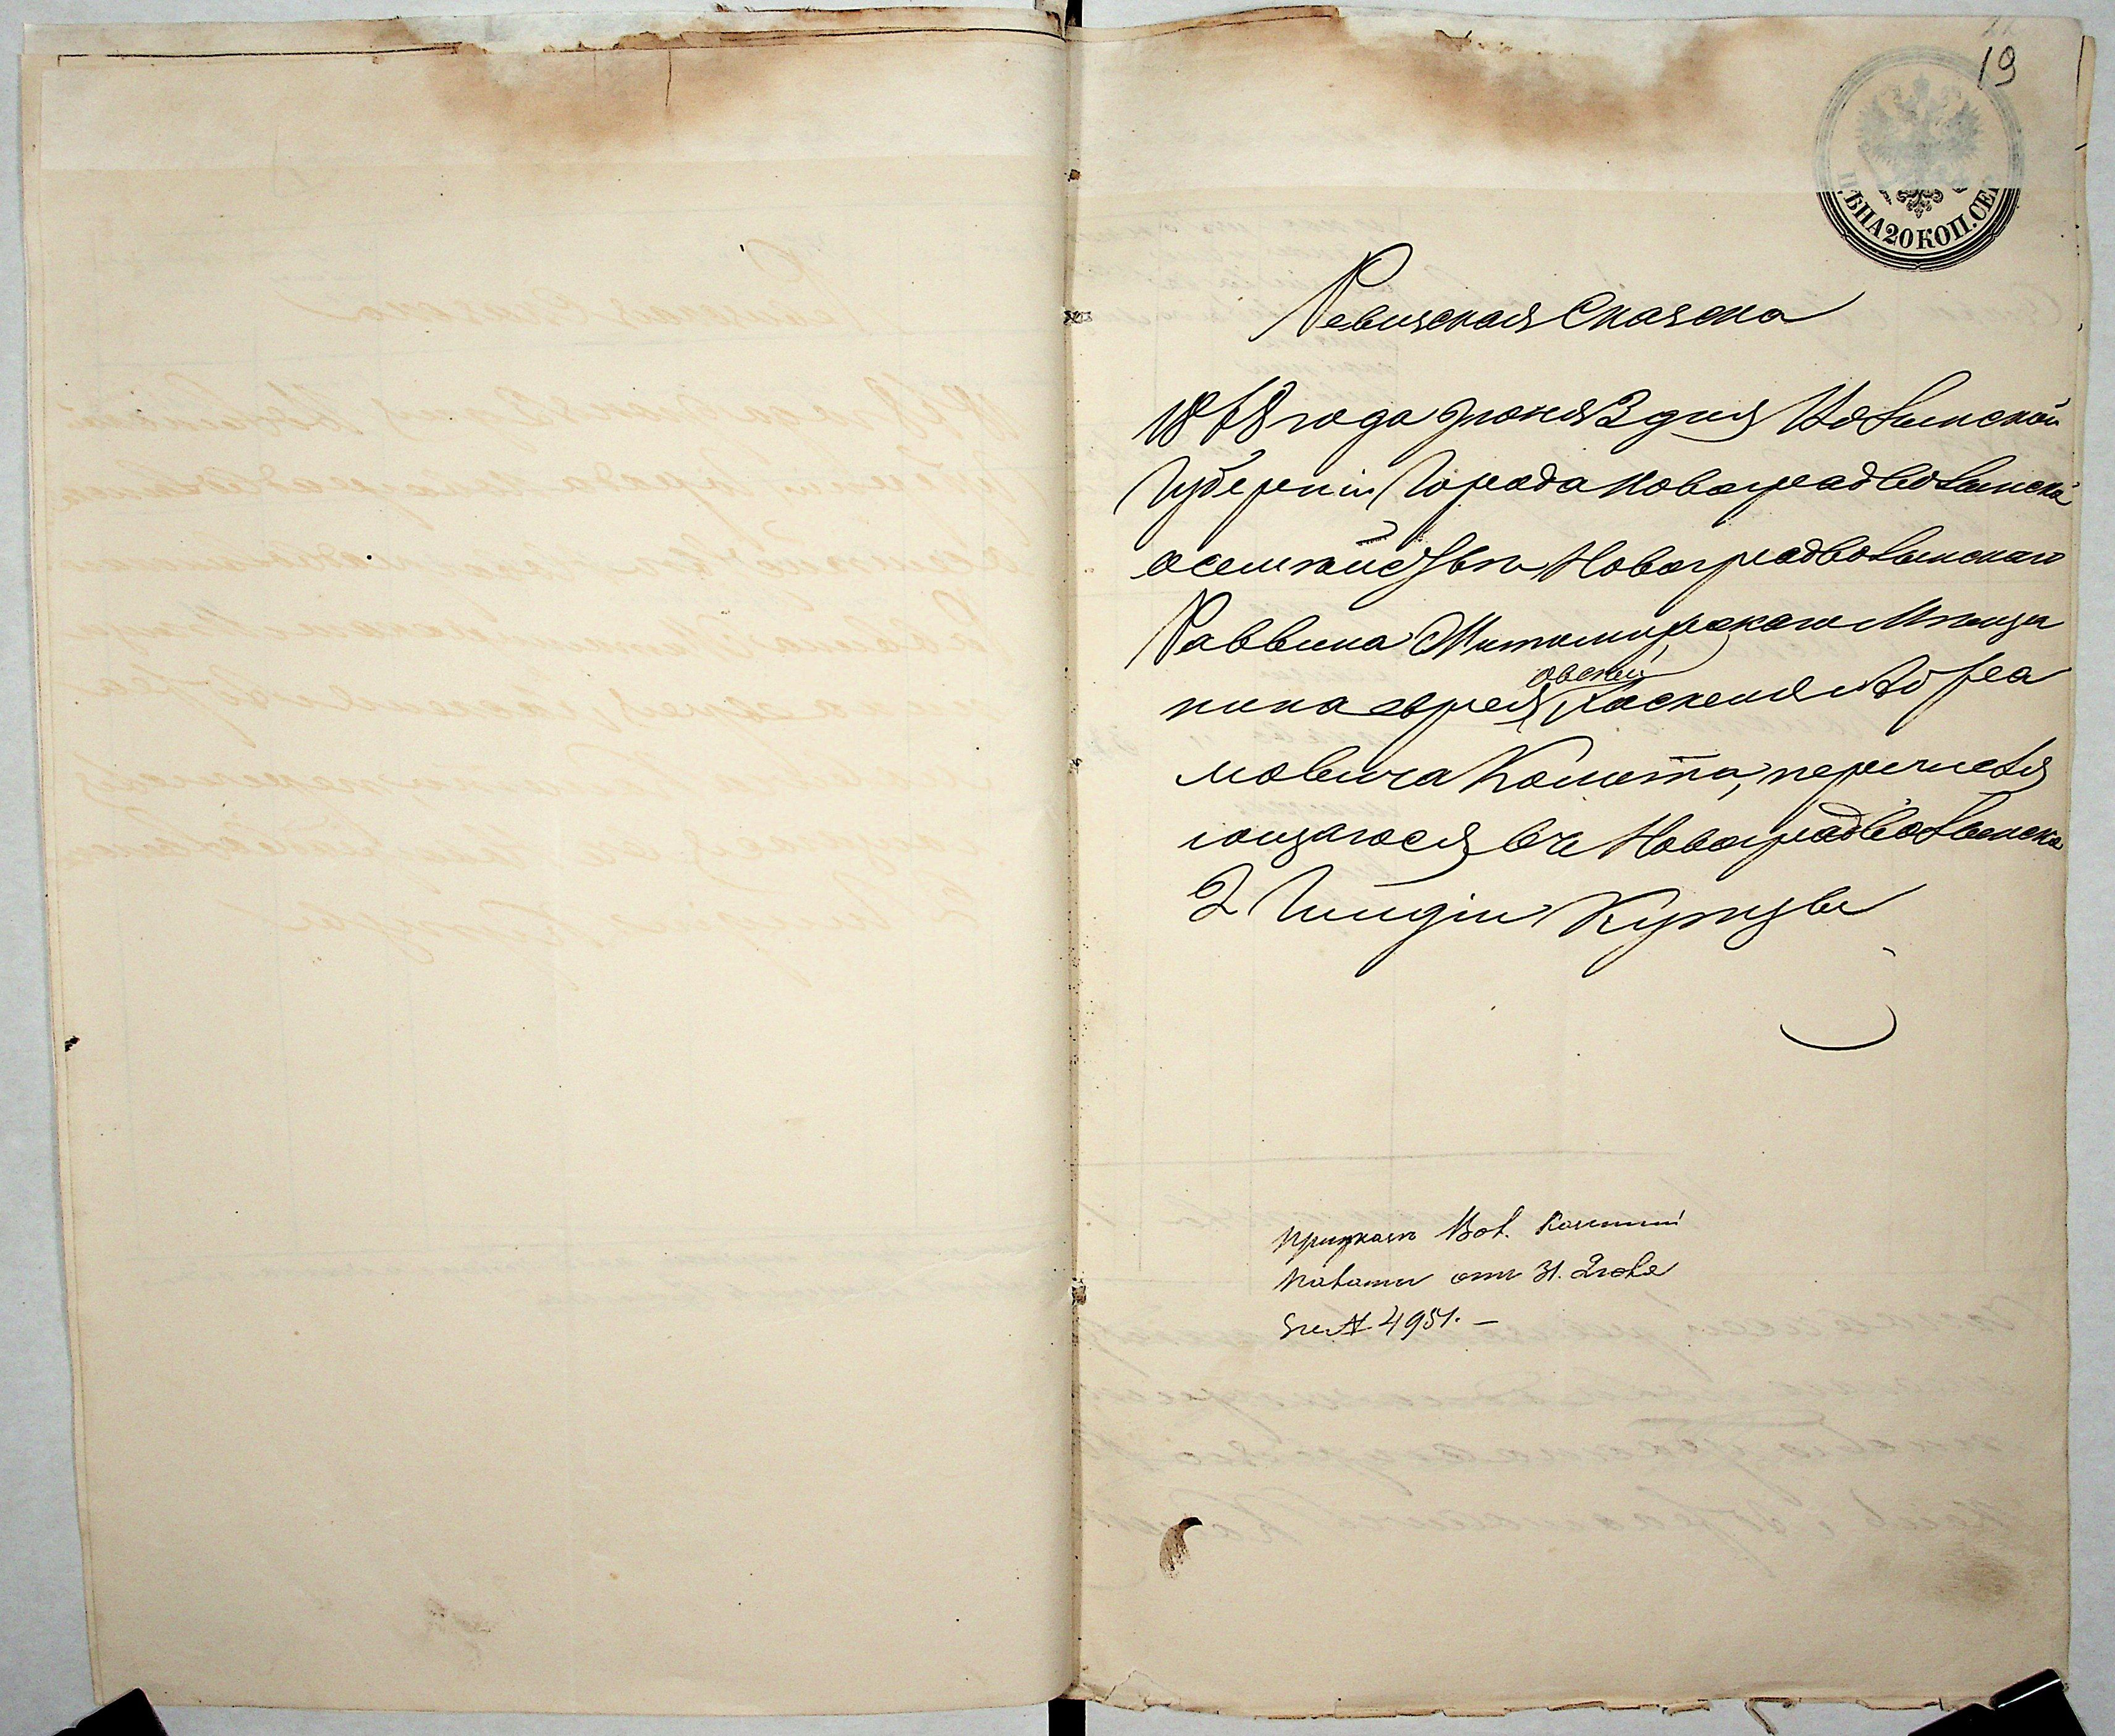 19
ЦѢНА 20 КОП. СЕР.
Ревизская Сказка
18 года Іюня 3 дня Волынской
Губерніи Города Новоградволынска
о семействѣ Новоградволынскаго
Раввина Житомирскаго Мѣща
овсѣй
нина еврея Абра
мовича перечисля
ющагося въ Новоградволынскіе
2 Гильдіи Купцы
Вол. Казенной
Палаты отъ 31. Іюля
за № 4951. —